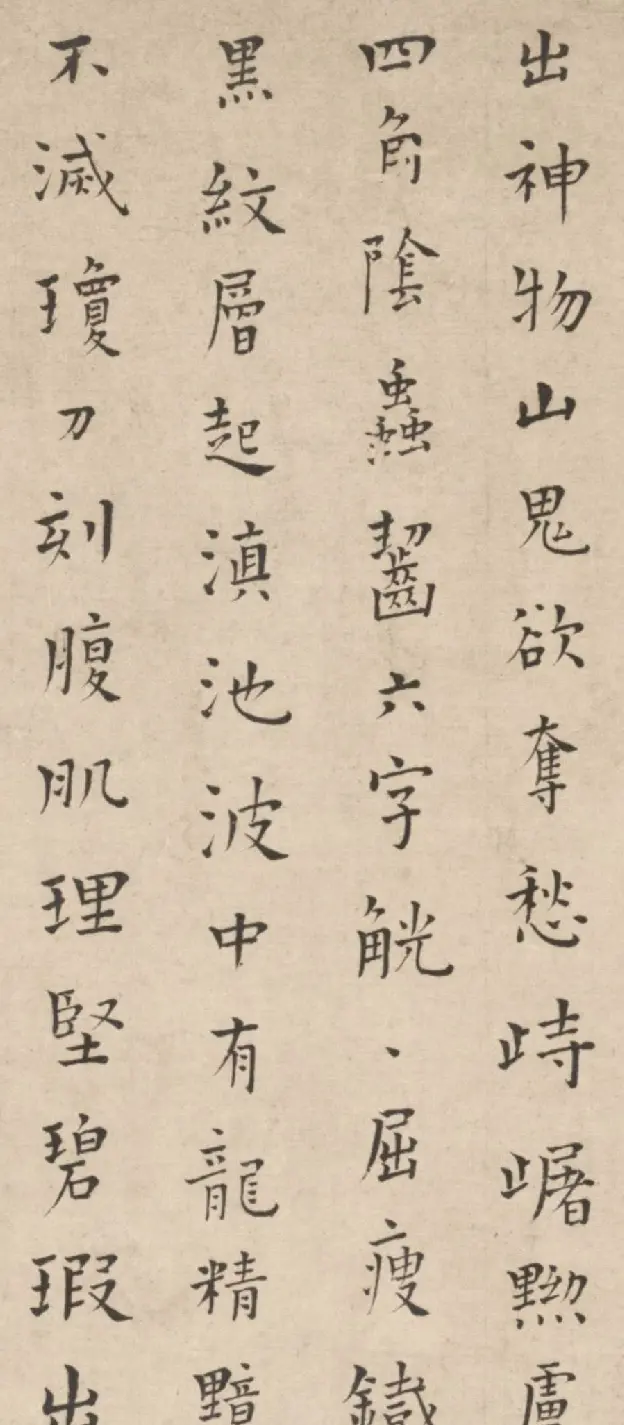 出神物山鬼欲奪愁峙𡹬黝盧
四角陰蟲齧六字觥、屈瘦鐵
黒紋層起滇池波中有龍精黯
不滅瓊刀刻腹肌理堅碧瑕出